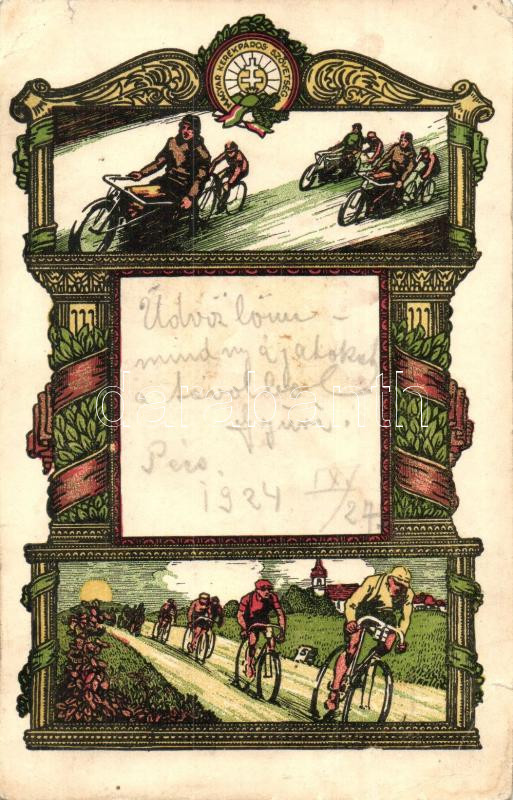 MAGYAR KERÉKPÁROS SZÖVETSÉG
Üdvözlöm
mindnyájatokat
a távolból
Gyuri.
Pécs.
1924 /27.
darabanth